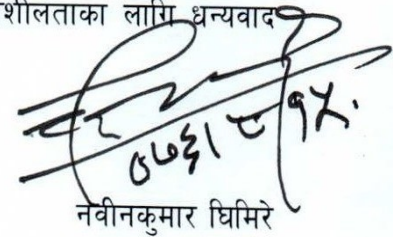 शीलताका लागि धन्यवाद
०७६।८।१५.
नवीनकुमार घिमिरे